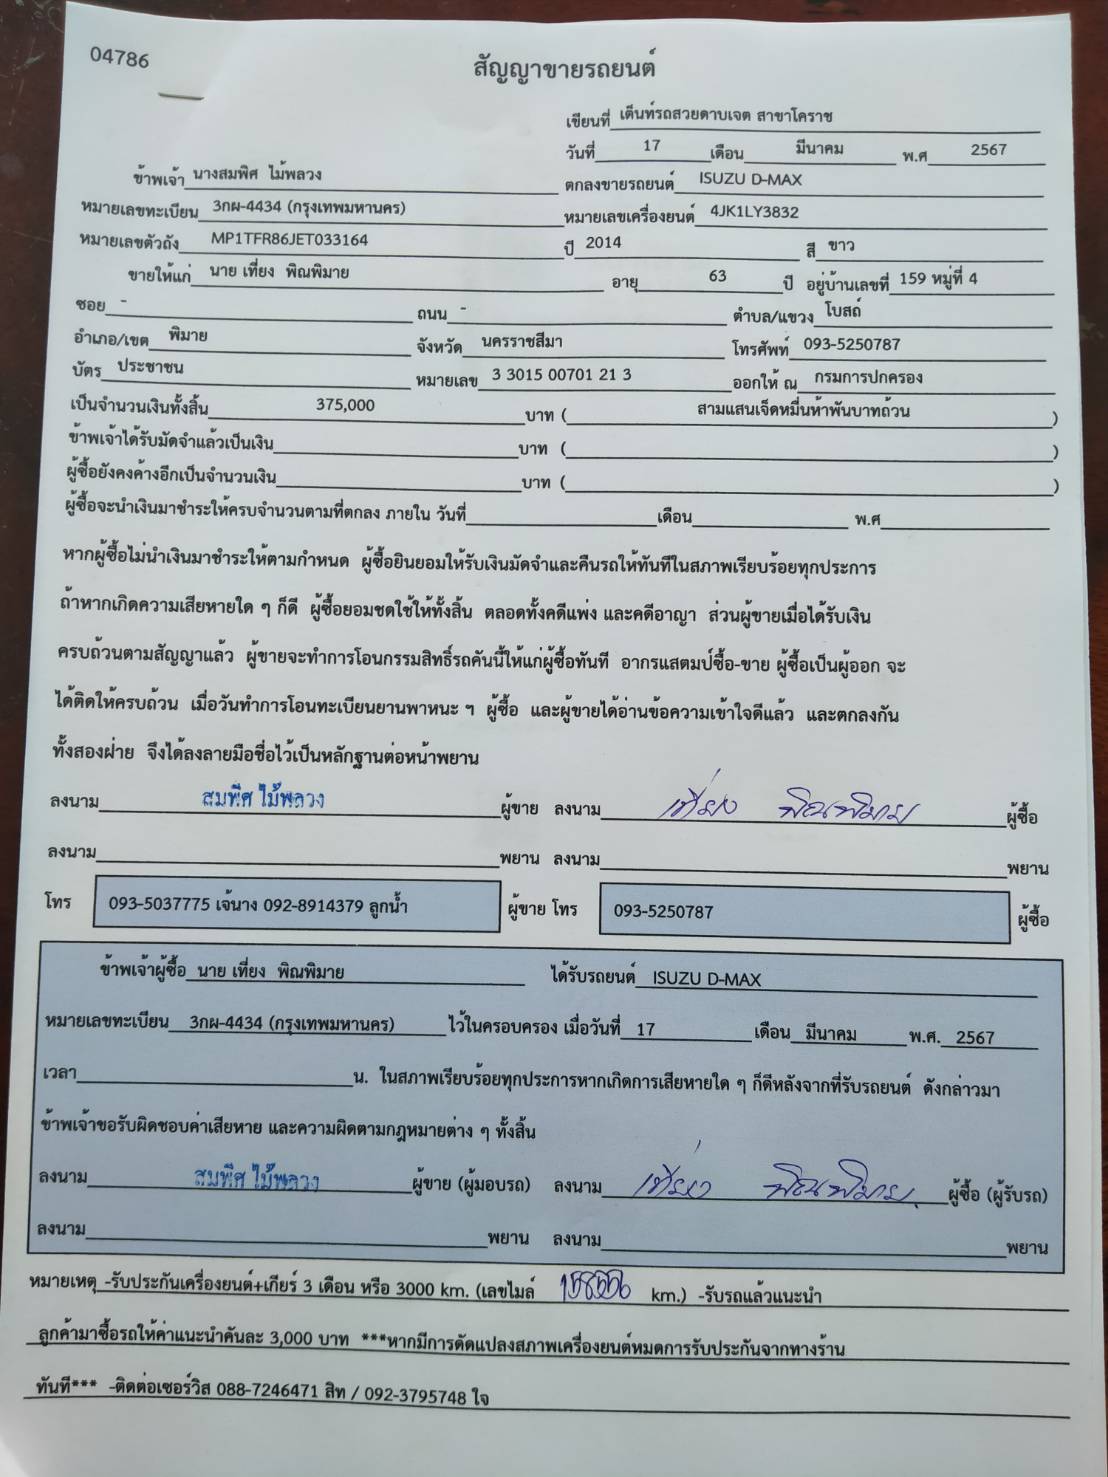 04786
สัญญาขายรถยนต์
เขียนที่ เต็นท์รถสวยดาบเจต สาขาโคราช
วันที่ 17 เดือน มีนาคม พ.ศ 2567
ข้าพเจ้า นางสมพิศ ไม้พลวง ตกลงขายรถยนต์ ISUZU D-MAX
หมายเลขทะเบียน 3กผ-4434 (กรุงเทพมหานคร) หมายเลขเครื่องยนต์ 4JK1LY3832
หมายเลขตัวถัง MP1TFR86JET033164 ปี 2014 สี ขาว
ขายให้แก่ นาย เที่ยง พิณพิมาย อายุ 63 ปี อยู่บ้านเลขที่ 159 หมู่ที่ 4
ซอย - ถนน - ตำบล/แขวง โบสถ์
อำเภอ/เขต พิมาย จังหวัด นครราชสีมา โทรศัพท์ 093-5250787
บัตร ประชาชน หมายเลข 3 3015 00701 21 3 ออกให้ ณ กรมการปกครอง
เป็นจำนวนเงินทั้งสิ้น 375,000 บาท ( สามแสนเจ็ดหมื่นห้าพันบาทถ้วน )
ข้าพเจ้าได้รับมัดจำแล้วเป็นเงิน บาท ( )
ผู้ซื้อยังคงค้างอีกเป็นจำนวนเงิน บาท ( )
ผู้ซื้อจะนำเงินมาชำระให้ครบจำนวนตามที่ตกลง ภายใน วันที่ เดือน พ.ศ
หากผู้ซื้อไม่นำเงินมาชำระให้ตามกำหนด ผู้ซื้อยินยอมให้รับเงินมัดจำและคืนรถให้ทันทีในสภาพเรียบร้อยทุกประการ
ถ้าหากเกิดความเสียหายใด ๆ ก็ดี ผู้ซื้อยอมชดใช้ให้ทั้งสิ้น ตลอดทั้งคดีแพ่ง และคดีอาญา ส่วนผู้ขายเมื่อได้รับเงิน
ครบถ้วนตามสัญญาแล้ว ผู้ขายจะทำการโอนกรรมสิทธิ์รถคันนี้ให้แก่ผู้ซื้อทันที อากรแสตมป์ซื้อ-ขาย ผู้ซื้อเป็นผู้ออก จะ
ได้ติดให้ครบถ้วน เมื่อวันทำการโอนทะเบียนยานพาหนะ ฯ ผู้ซื้อ และผู้ขายได้อ่านข้อความเข้าใจดีแล้ว และตกลงกัน
ทั้งสองฝ่าย จึงได้ลงลายมือชื่อไว้เป็นหลักฐานต่อหน้าพยาน
ลงนาม สมพิศ ไม้พลวง ผู้ขาย ลงนาม เที่ยง พิณพิมาย ผู้ซื้อ
ลงนาม พยาน ลงนาม พยาน
โทร 093-5037775 เจ้นาง 092-8914379 ลูกน้ำ ผู้ขาย โทร 093-5250787 ผู้ซื้อ
ข้าพเจ้าผู้ซื้อ นาย เที่ยง พิณพิมาย ได้รับรถยนต์ ISUZU D-MAX
หมายเลขทะเบียน 3กผ-4434 (กรุงเทพมหานคร) ไว้ในครอบครอง เมื่อวันที่ 17 เดือน มีนาคม พ.ศ. 2567
เวลา น. ในสภาพเรียบร้อยทุกประการหากเกิดการเสียหายใด ๆ ก็ดีหลังจากที่รับรถยนต์ ดังกล่าวมา
ข้าพเจ้าขอรับผิดชอบค่าเสียหาย และความผิดตามกฎหมายต่าง ๆ ทั้งสิ้น
ลงนาม สมพิศ ไม้พลวง ผู้ขาย (ผู้มอบรถ) ลงนาม เที่ยง พิณพิมาย ผู้ซื้อ (ผู้รับรถ)
ลงนาม พยาน ลงนาม พยาน
หมายเหตุ -รับประกันเครื่องยนต์+เกียร์ 3 เดือน หรือ 3000 km. (เลขไมล์ km.) -รับรถแล้วแนะนำ
ลูกค้ามาซื้อรถให้ค่าแนะนำคันละ 3,000 บาท ***หากมีการดัดแปลงสภาพเครื่องยนต์หมดการรับประกันจากทางร้าน
ทันที*** -ติดต่อเซอร์วิส 088-7246471 สิท / 092-3795748 ใจ